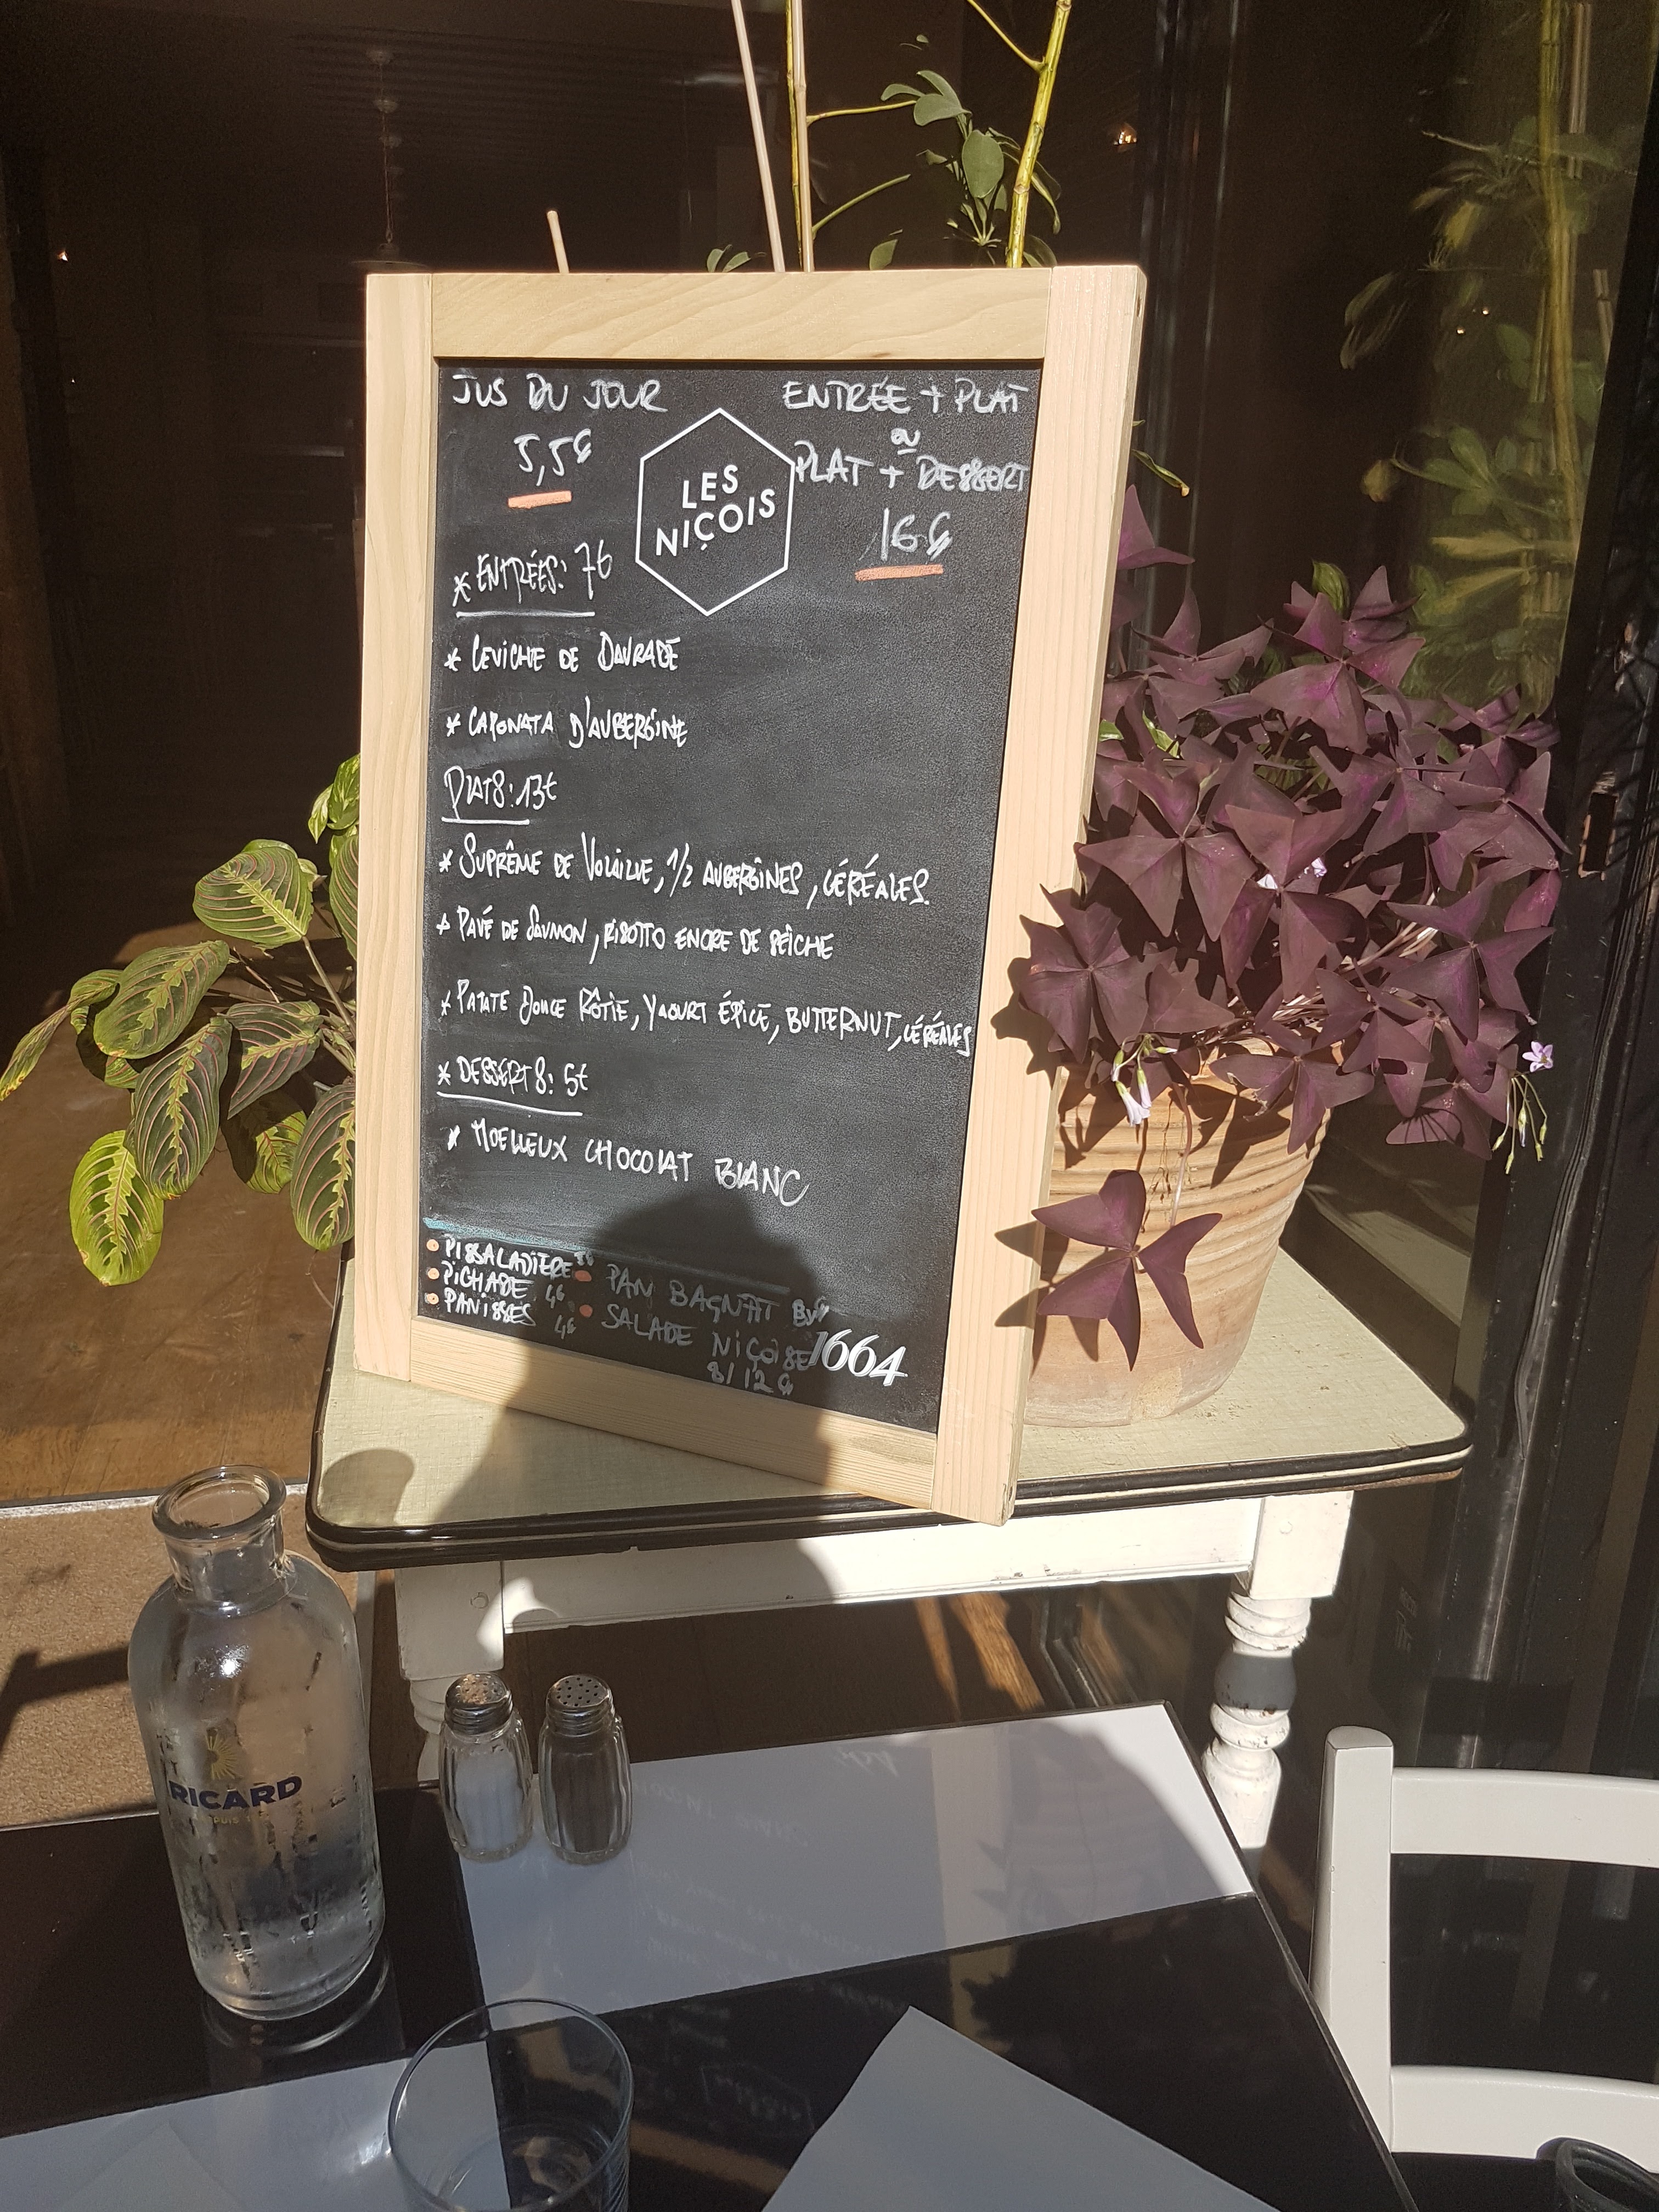 JUS DU JOUR
5,5€
LES
NIÇOIS
ENTRÉE + PLAT
ou
PLAT + DESSERT
16€
* ENTRÉES: 7€
* CEVICHE DE DAURADE
* CAPONATA D'AUBERGINE
PLATS: 13€
* SUPRÊME DE VOLAILLE, 1/2 AUBERGINES, CÉRÉALES.
* PAVÉ DE SAUMON, RISOTTO ENCRE DE SEICHE
* PATATE DOUCE RÔTIE, YAOURT ÉPICÉ, BUTTERNUT, CÉRÉALES
* DESSERTS: 5€
* MOELLEUX CHOCOLAT BLANC
• PISSALADIÈRE
• PICHADE 4€
• PANISSES 4€
• PAN BAGNAT
• SALADE NIÇOISE
8/12€
1664
RICARD